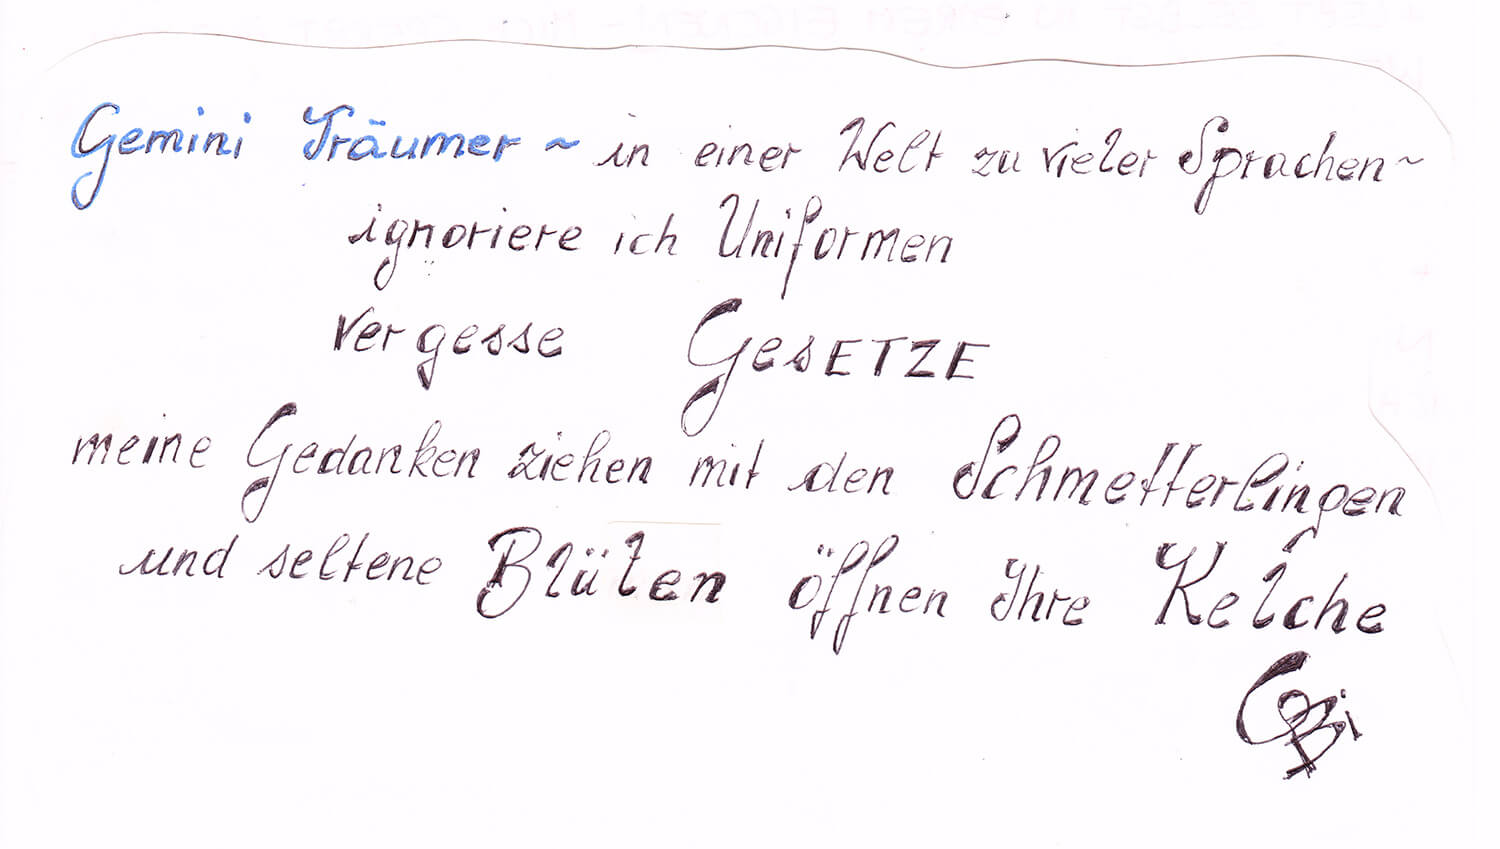 Gemini Träumer ~ in einer Welt zu vieler Sprachen ~
ignoriere ich Uniformen
vergesse GesETZE
meine Gedanken ziehen mit den Schmetterlingen
und seltene Blüten öffnen Ihre Kelche